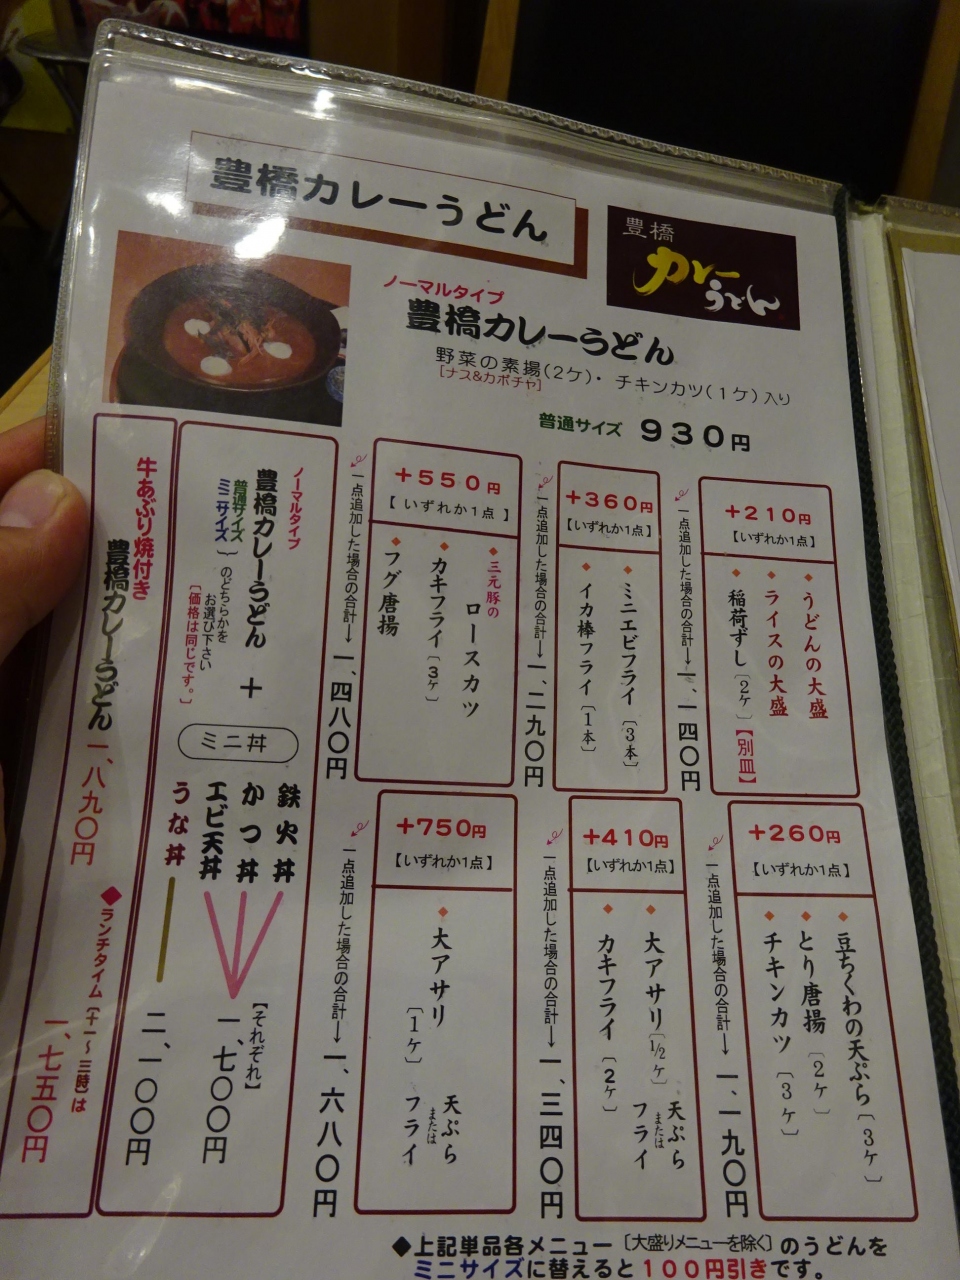 豊橋カレーうどん
豊橋
カレー
うどん
ノーマルタイプ
豊橋カレーうどん
野菜の素揚(2ケ)・チキンカツ(1ケ)入り
[ナス&カボチャ]
普通サイズ 930円
+210円
【いずれか1点】
◆うどんの大盛
◆ライスの大盛
◆稲荷ずし〔2ケ〕【別皿】
一点追加した場合の合計→一、一四〇円
+360円
【いずれか1点】
◆ミニエビフライ〔3本〕
◆イカ棒フライ〔1本〕
一点追加した場合の合計→一、二九〇円
+550円
【いずれか1点】
◆三元豚の
ロースカツ
◆カキフライ〔3ケ〕
◆フグ唐揚
一点追加した場合の合計→一、四八〇円
+260円
【いずれか1点】
◆豆ちくわの天ぷら〔3ケ〕
◆とり唐揚〔2ケ〕
◆チキンカツ〔3ケ〕
一点追加した場合の合計→一、一九〇円
+410円
【いずれか1点】
◆大アサリ〔1/2ケ〕天ぷら
または
フライ
◆カキフライ〔2ケ〕
一点追加した場合の合計→一、三四〇円
+750円
【いずれか1点】
◆大アサリ〔1ケ〕天ぷら
または
フライ
一点追加した場合の合計→一、六八〇円
ノーマルタイプ
豊橋カレーうどん
普通サイズ
ミニサイズ
のどちらかを
お選び下さい
[価格は同じです。]
+
ミニ丼
鉄火丼
かつ丼
エビ天丼
【それぞれ】
一、七〇〇円
うな丼
二、一〇〇円
牛あぶり焼付き
豊橋カレーうどん 一、八九〇円
◆ランチタイム(十一〜三時)は
一、七五〇円
◆上記単品各メニュー〔大盛りメニューを除く〕のうどんを
ミニサイズに替えると100円引きです。